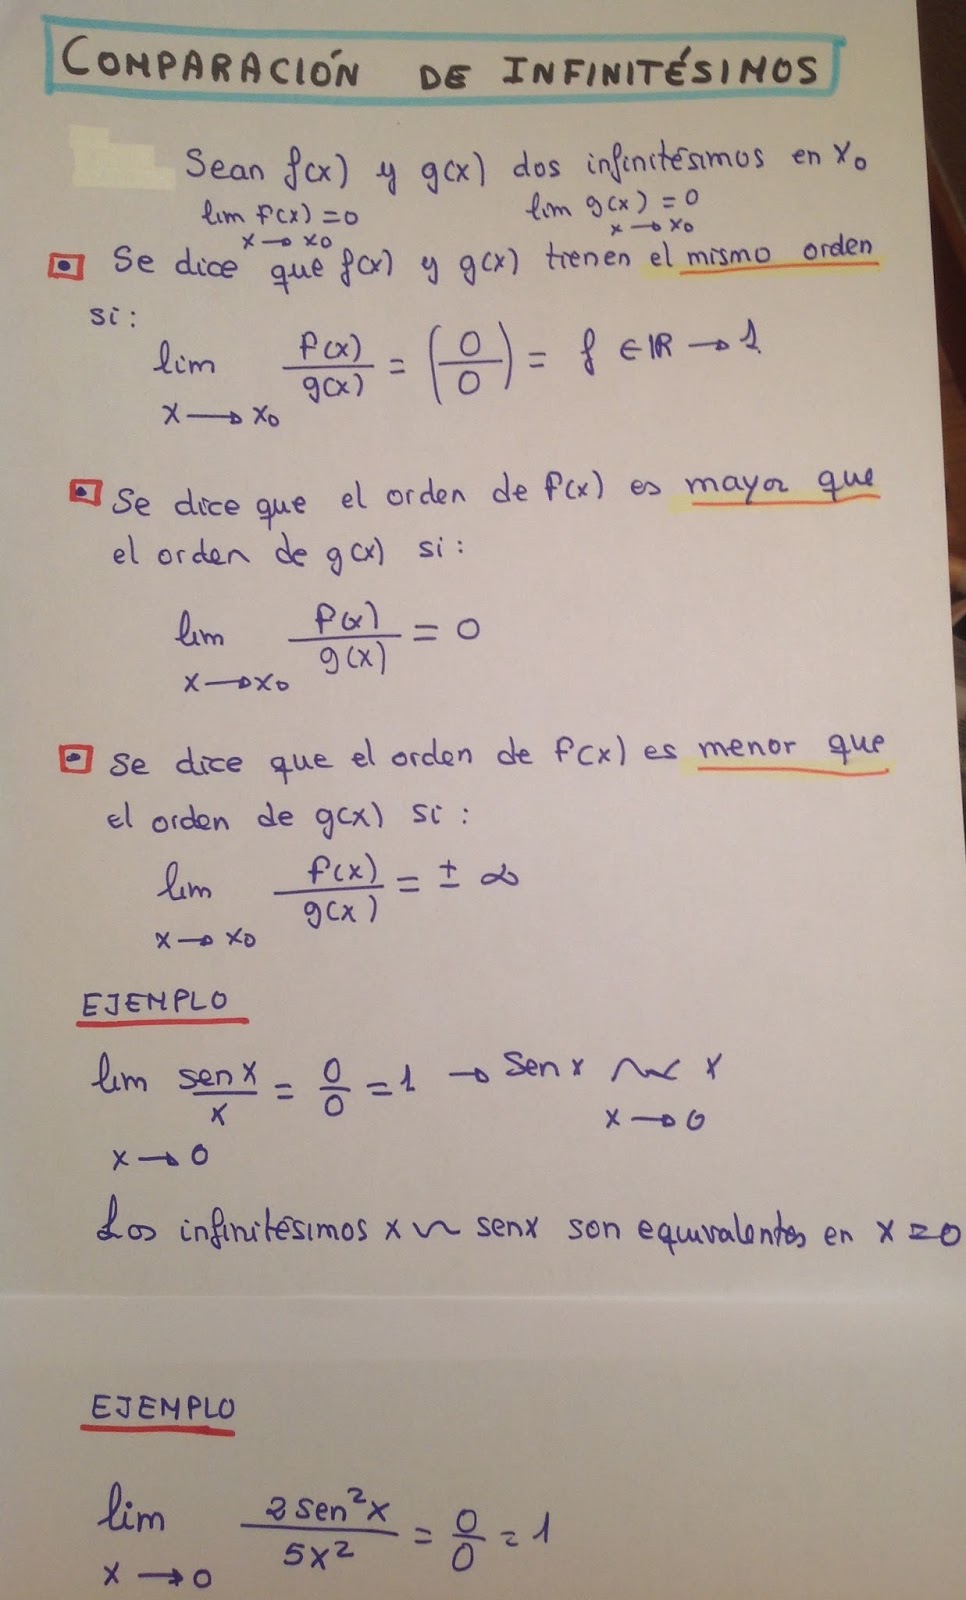 COMPARACIÓN DE INFINITÉSIMOS
Sean f(x) y g(x) dos infinitésimos en x₀
lim f(x) = 0 lim g(x) = 0
x → x₀ x → x₀
Se dice que f(x) y g(x) tienen el mismo orden
si:
lim f(x)/g(x) = (0/0) = f ∈ ℝ → 1
x → x₀
Se dice que el orden de f(x) es mayor que
el orden de g(x) si:
lim f(x)/g(x) = 0
x → x₀
Se dice que el orden de f(x) es menor que
el orden de g(x) si:
lim f(x)/g(x) = ± ∞
x → x₀
EJEMPLO
lim sen x/x = 0/0 = 1 → sen x ~ x
x → 0 x → 0
Los infinitésimos x ~ senx son equivalentes en x = 0
EJEMPLO
lim 2 sen²x/5x² = 0/0 = 1
x → 0